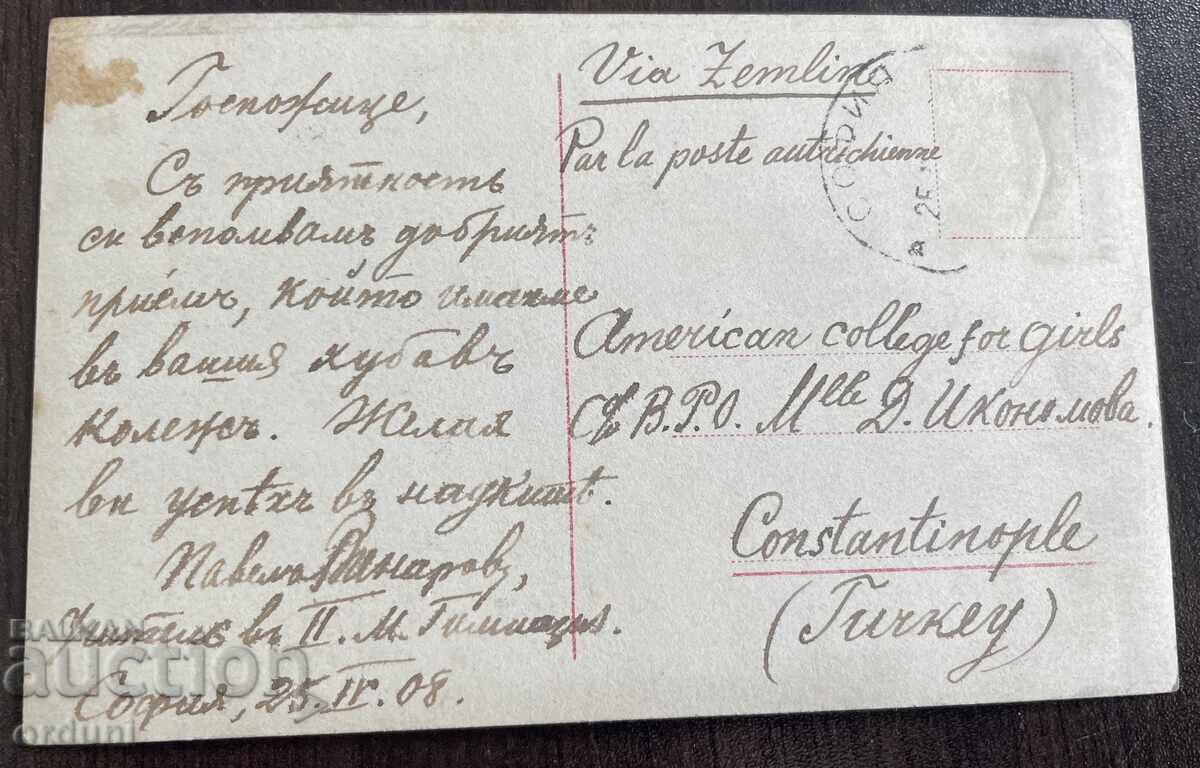 Госпожице,
Съ приятность
си вспомвамъ добриятъ
приемъ, който имахме
въ вашия хубавъ
колежъ. Желая
ви успѣхъ въ наукитѣ.
Павелъ
Учитель въ II. М. Гимназия.
София, 25. IV. 08.
Via Zemlin
Par la poste autrichienne
СОФИЯ
25
American college for girls
B.P.O. Mlle Д. Икономова.
Constantinople
(Turkey)
BALKAN
auction
orduni